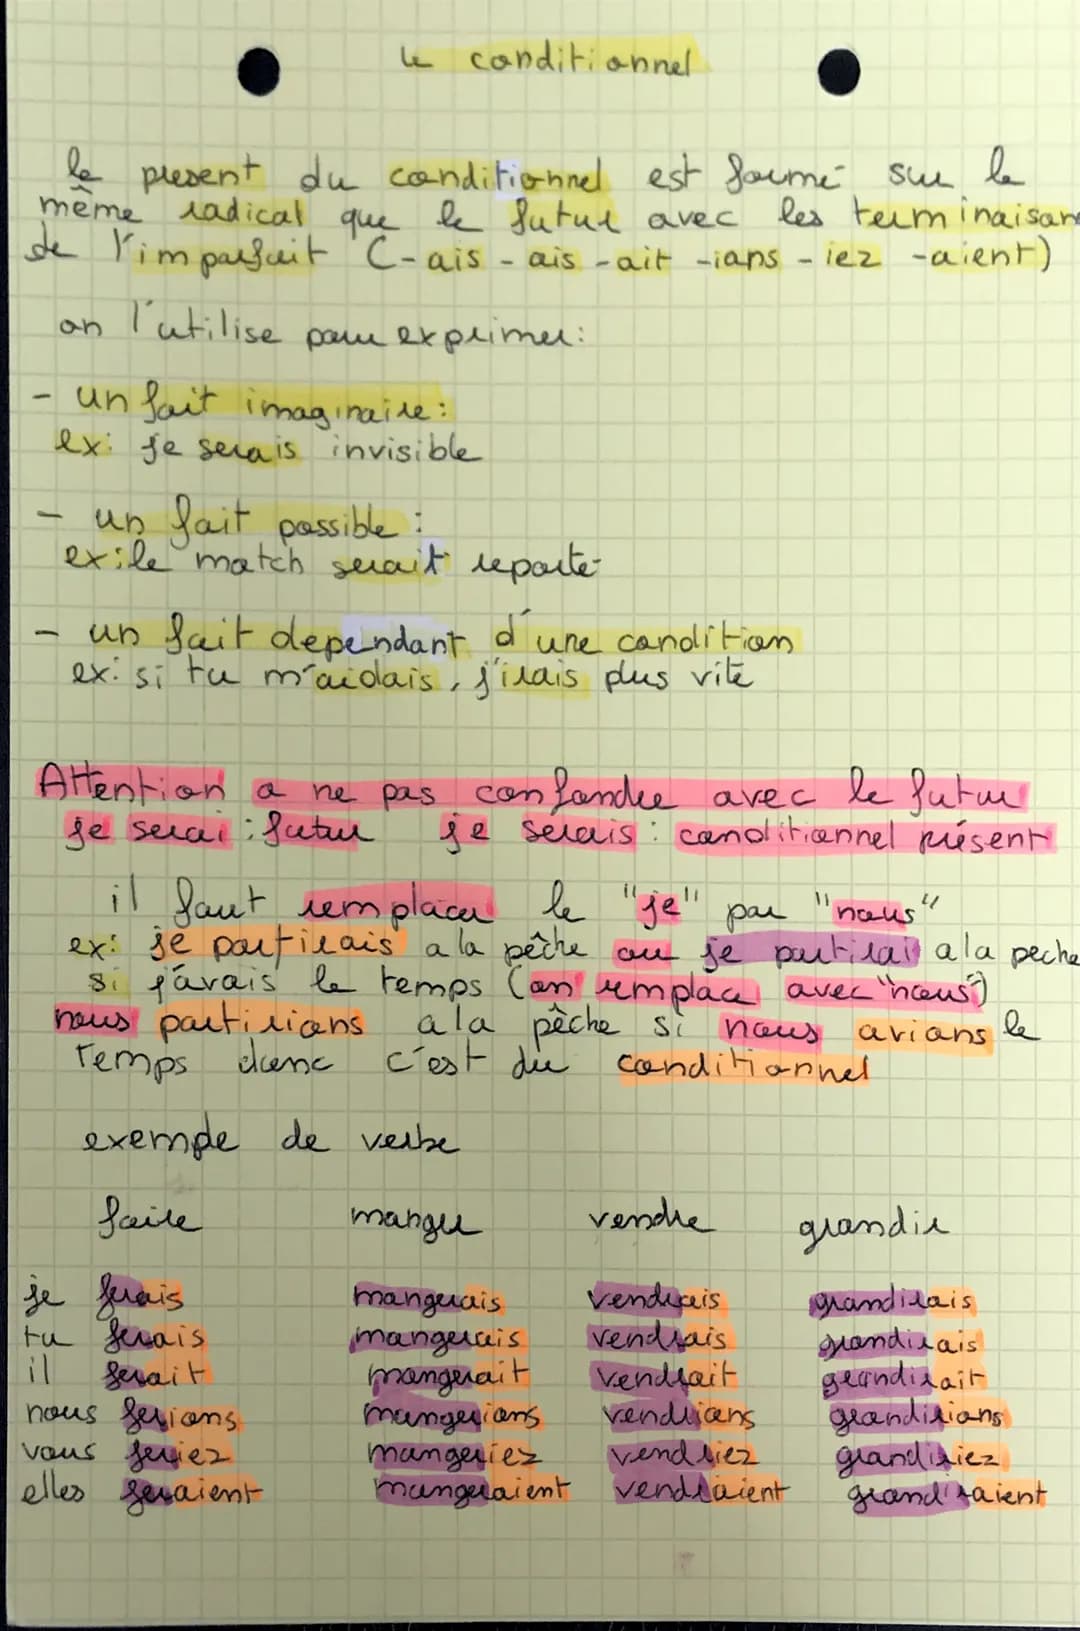 le conditionnel
le présent du conditionnel est formé sur le
même radical que le futur avec les terminaisons
de l'imparfait (-ais -ais -ait -ions -iez -aient)
on l'utilise pour exprimer:
- un fait imaginaire:
ex: je serais invisible
- un fait possible:
ex: le match serait reporté
- un fait dependant d'une condition
ex: si tu m'aidais, j'irais plus vite
Attention a ne pas confondre avec le futur
je serai: futur je serais: conditionnel présent
il faut remplacer le "je" par "nous"
ex: je partirais a la pêche ou je partirai a la peche
si j'avais le temps (on remplace avec "nous")
nous partirions a la pêche si nous avions le
temps donc c'est du conditionnel
exemple de verbe
faire manger vendre grandir
je ferais mangerais vendrais grandirais
tu ferais mangerais vendrais grandirais
il ferait mangerait vendrait grandirait
nous ferions mangerions vendrions grandirions
vous feriez mangeriez vendriez grandiriez
elles feraient mangeraient vendraient grandiraient